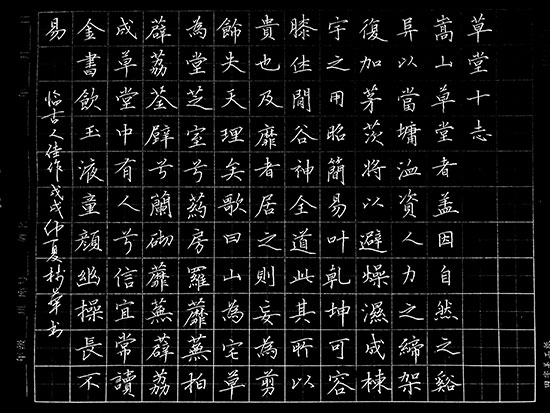 草堂十志
嵩山草堂者盖因自然之谿
异以當墉洫資人力之締架
復加茅茨將以避燥濕成棟
宇之用昭簡易叶乾坤可容
膝休閒谷神全道此其所以
貴也及靡者居之則妄為剪
飾失天理矣歌曰山為宅草
為堂芝室兮葯房羅蘼蕪拍
薜荔荃壁兮蘭砌蘼蕪薜荔
成草堂中有人兮信宜常讀
金書飲玉液童顏幽操長不
易
临古人佳作戊戌仲夏